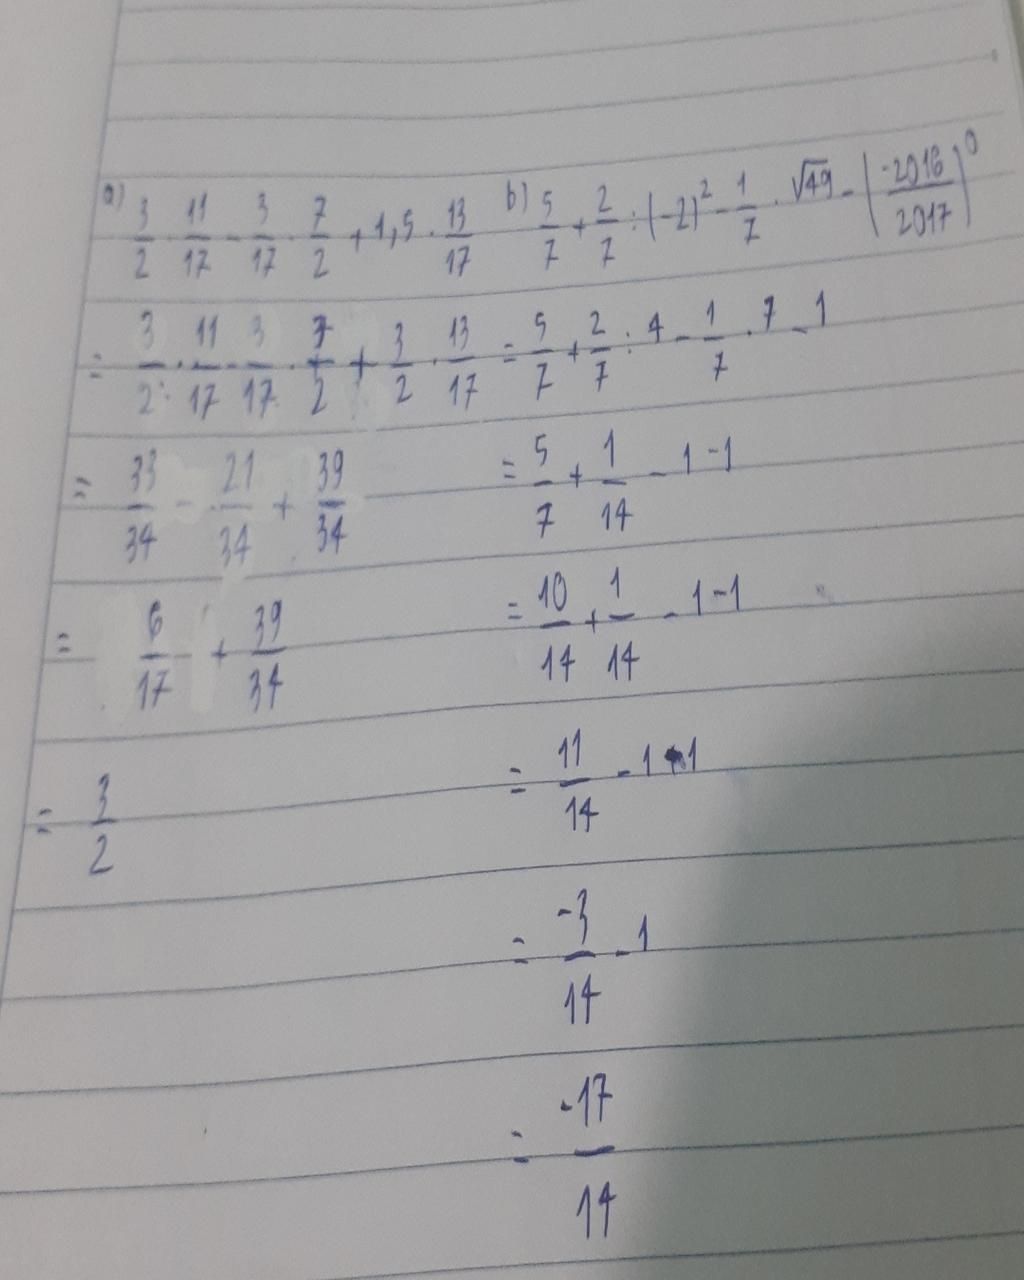 a) 3/2 · 11/17 - 3/17 · 7/2 + 1,5 · 13/17
= 3/2 · 11/17 - 3/17 · 7/2 + 3/2 · 13/17
= 33/34 - 21/34 + 39/34
= 6/17 + 39/34
= 3/2
b) 5/7 + 2/7 : (-2)² - 1/7 · √49 - (-2016/2017)⁰
= 5/7 + 2/7 : 4 - 1/7 · 7 - 1
= 5/7 + 1/14 - 1 - 1
= 10/14 + 1/14 - 1 - 1
= 11/14 - 1 - 1
= -3/14 - 1
= -17/14